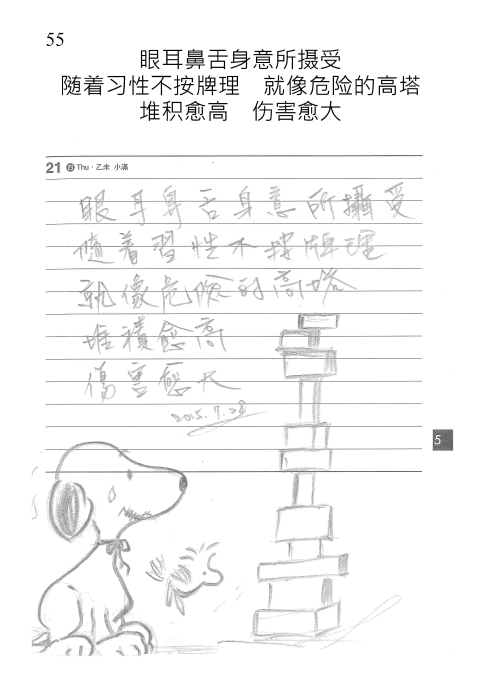 55
眼耳鼻舌身意所摄受
随着习性不按牌理　就像危险的高塔
堆积愈高　伤害愈大
21 四 Thu・乙未 小滿
眼耳鼻舌身意所攝受
隨着習性不按牌理
就像危險的高塔
堆積愈高
傷害愈大
2015.7.28
5